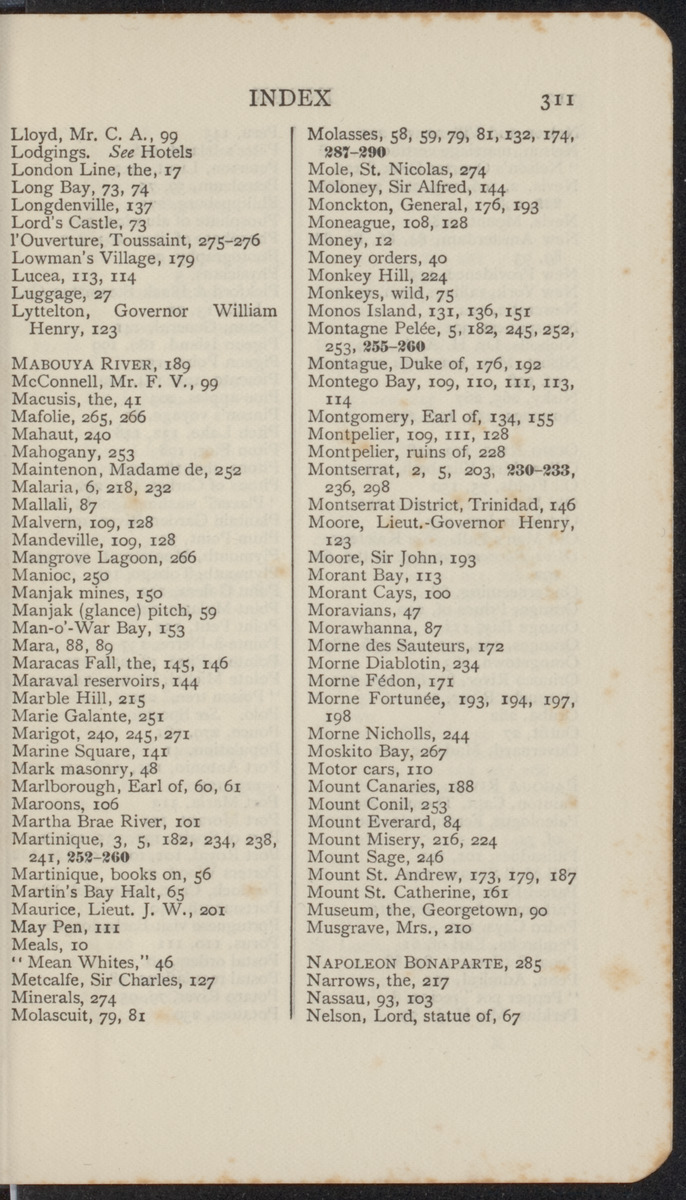 INDEX 311
Lloyd, Mr. C. A., 99
Lodgings. See Hotels
London Line, the, 17
Long Bay, 73, 74
Longdenville, 137
Lord's Castle, 73
l'Ouverture, Toussaint, 275–276
Lowman's Village, 179
Lucea, 113, 114
Luggage, 27
Lyttelton, Governor William
Henry, 123
MABOUYA RIVER, 189
McConnell, Mr. F. V., 99
Macusis, the, 41
Mafolie, 265, 266
Mahaut, 240
Mahogany, 253
Maintenon, Madame de, 252
Malaria, 6, 218, 232
Mallali, 87
Malvern, 109, 128
Mandeville, 109, 128
Mangrove Lagoon, 266
Manioc, 250
Manjak mines, 150
Manjak (glance) pitch, 59
Man-o'-War Bay, 153
Mara, 88, 89
Maracas Fall, the, 145, 146
Maraval reservoirs, 144
Marble Hill, 215
Marie Galante, 251
Marigot, 240, 245, 271
Marine Square, 141
Mark masonry, 48
Marlborough, Earl of, 60, 61
Maroons, 106
Martha Brae River, 101
Martinique, 3, 5, 182, 234, 238,
241, 252–260
Martinique, books on, 56
Martin's Bay Halt, 65
Maurice, Lieut. J. W., 201
May Pen, 111
Meals, 10
"Mean Whites," 46
Metcalfe, Sir Charles, 127
Minerals, 274
Molascuit, 79, 81
Molasses, 58, 59, 79, 81, 132, 174,
287–290
Mole, St. Nicolas, 274
Moloney, Sir Alfred, 144
Monckton, General, 176, 193
Moneague, 108, 128
Money, 12
Money orders, 40
Monkey Hill, 224
Monkeys, wild, 75
Monos Island, 131, 136, 151
Montagne Pelée, 5, 182, 245, 252,
253, 255–260
Montague, Duke of, 176, 192
Montego Bay, 109, 110, 111, 113,
114
Montgomery, Earl of, 134, 155
Montpelier, 109, 111, 128
Montpelier, ruins of, 228
Montserrat, 2, 5, 203, 230–233,
236, 298
Montserrat District, Trinidad, 146
Moore, Lieut.-Governor Henry,
123
Moore, Sir John, 193
Morant Bay, 113
Morant Cays, 100
Moravians, 47
Morawhanna, 87
Morne des Sauteurs, 172
Morne Diablotin, 234
Morne Fédon, 171
Morne Fortunée, 193, 194, 197,
198
Morne Nicholls, 244
Moskito Bay, 267
Motor cars, 110
Mount Canaries, 188
Mount Conil, 253
Mount Everard, 84
Mount Misery, 216, 224
Mount Sage, 246
Mount St. Andrew, 173, 179, 187
Mount St. Catherine, 161
Museum, the, Georgetown, 90
Musgrave, Mrs., 210
NAPOLEON BONAPARTE, 285
Narrows, the, 217
Nassau, 93, 103
Nelson, Lord, statue of, 67